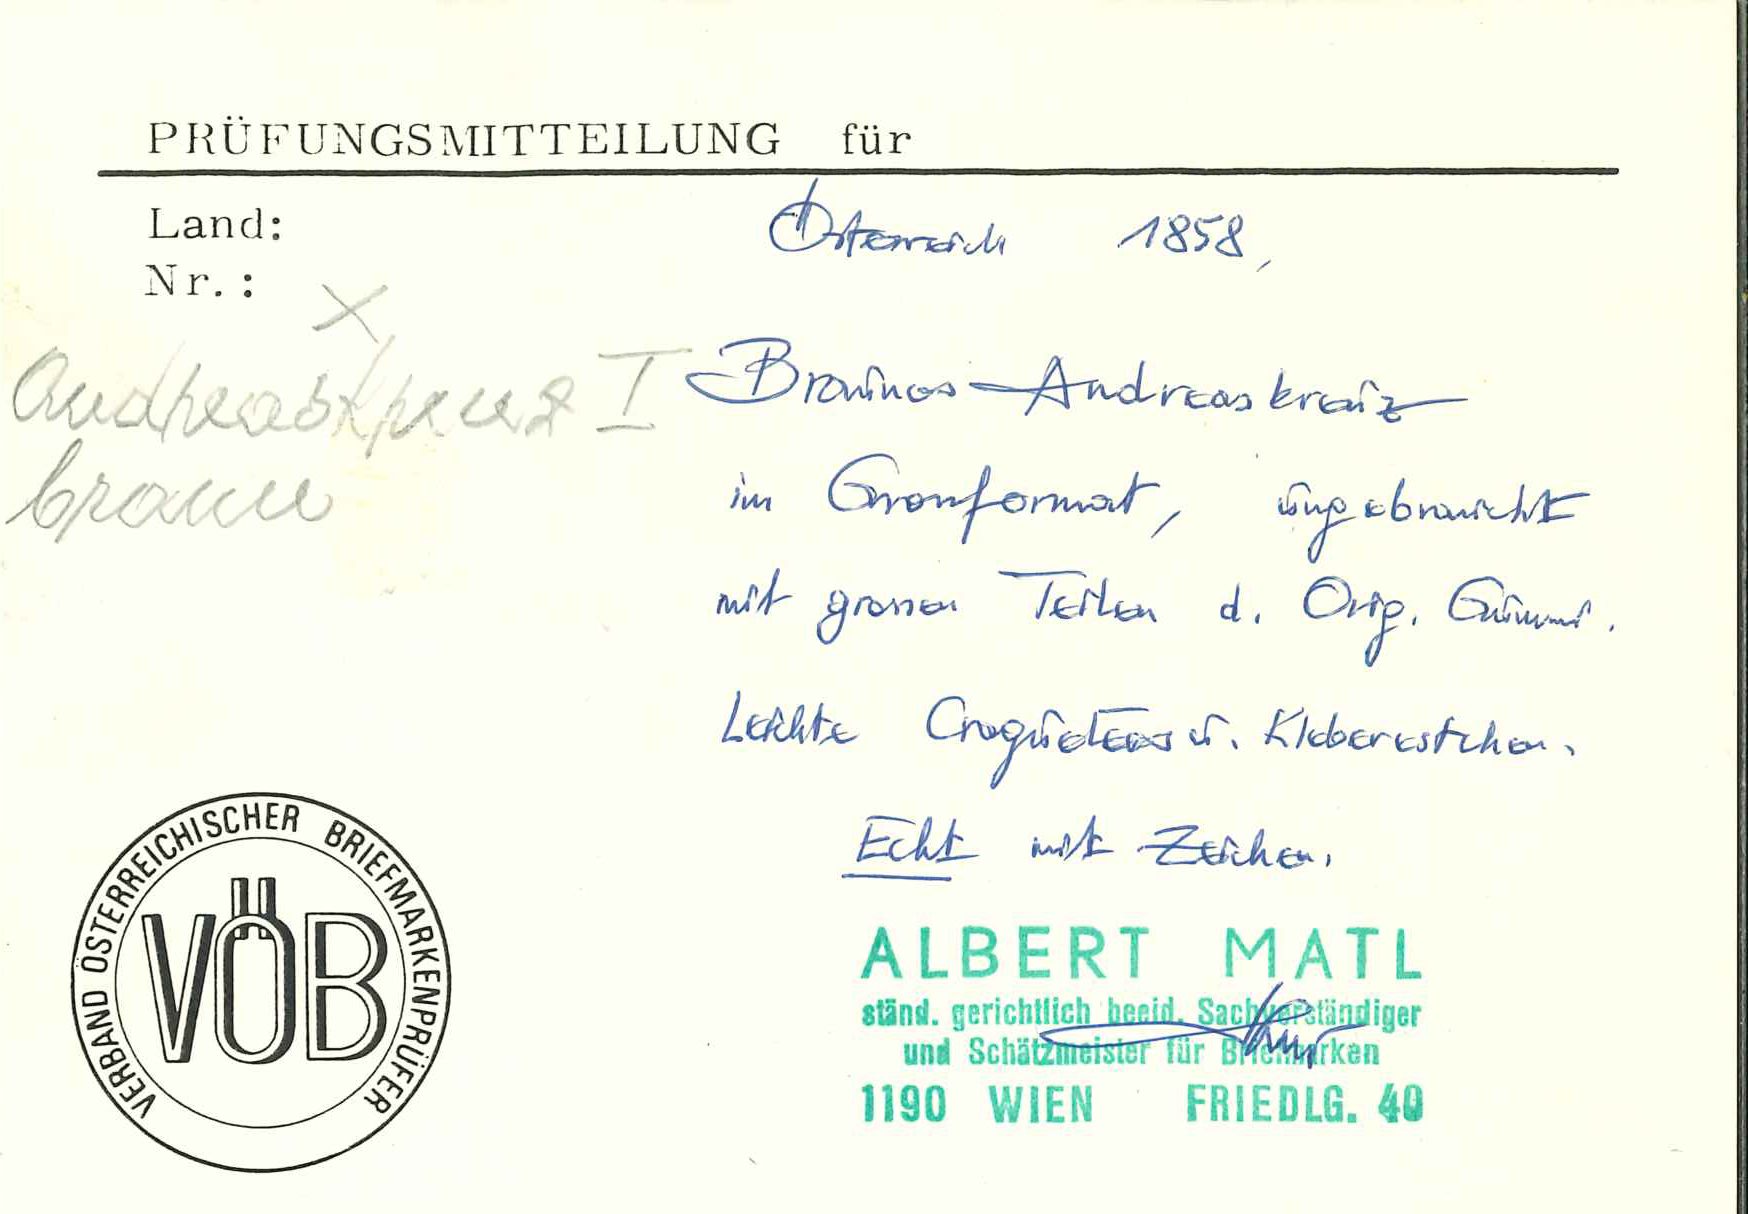 PRÜFUNGSMITTEILUNG für
Land: Österreich 1858,
Nr.:
Andreaskreuz I
braun
Braunes Andreaskreuz
im Grossformat, ungebraucht
mit grossen Teilen d. Orig. Gummi.
Leichte u. Kleberestchen.
Echt mit Zeichen.
ALBERT MATL
ständ. gerichtlich beeid. Sachverständiger
und Schätzmeister für Briefmarken
1190 WIEN FRIEDLG. 40
VERBAND ÖSTERREICHISCHER BRIEFMARKENPRÜFER
VÖB